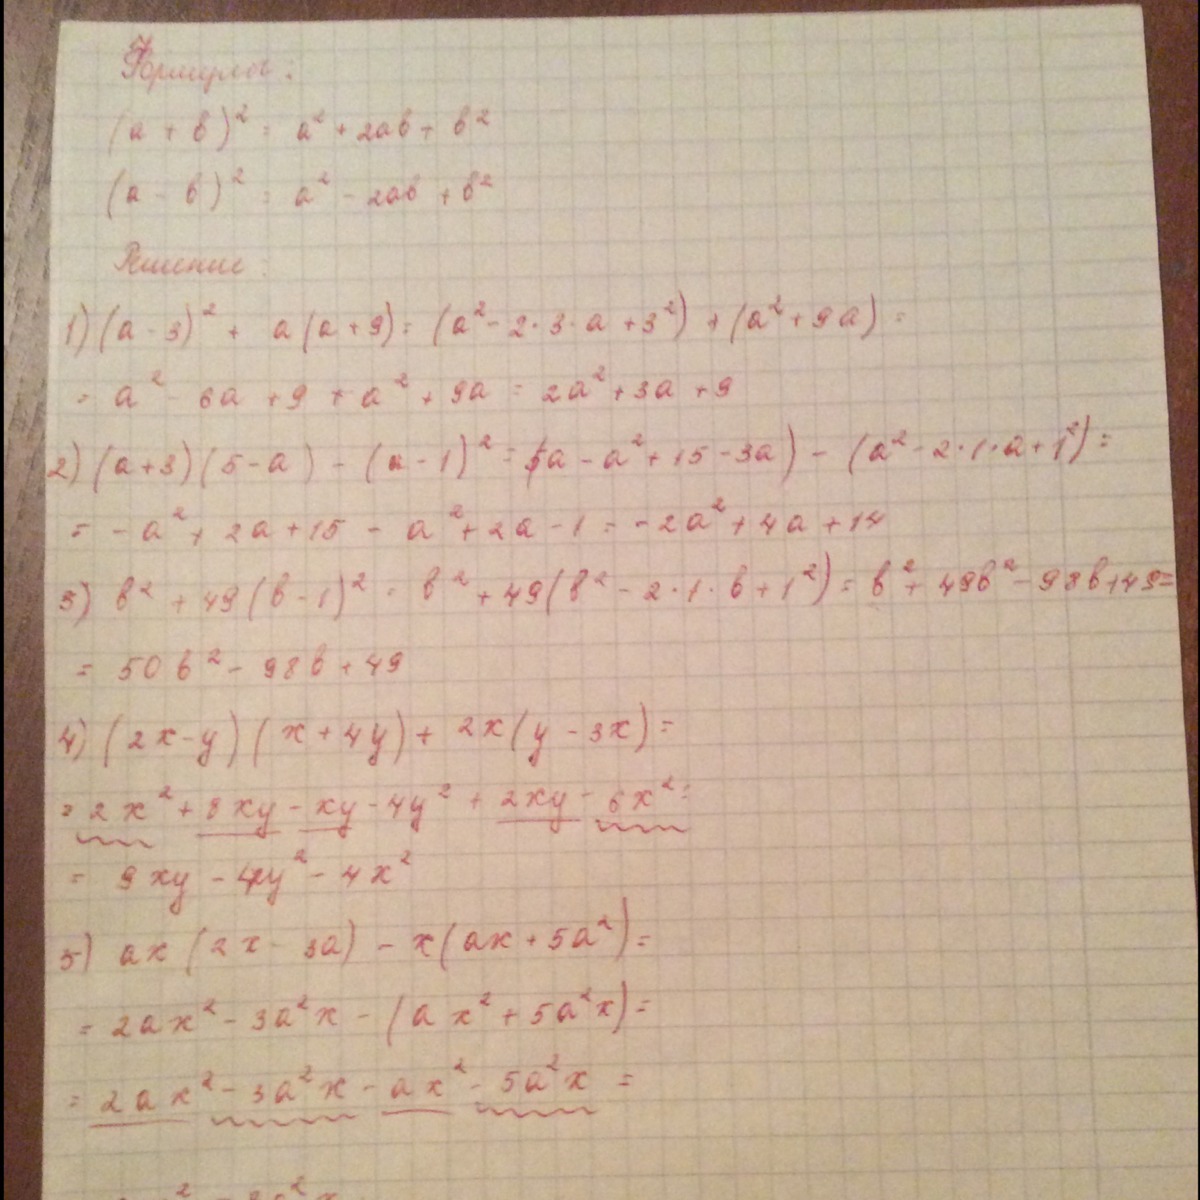 Формулы:
(a + b)² = a² + 2ab + b²
(a - b)² = a² - 2ab + b²
Решение:
1) (a - 3)² + a(a + 9) = (a² - 2·3·a + 3²) + (a² + 9a) =
= a² - 6a + 9 + a² + 9a = 2a² + 3a + 9
2) (a + 3)(5 - a) - (a - 1)² = (5a - a² + 15 - 3a) - (a² - 2·1·a + 1²) =
= -a² + 2a + 15 - a² + 2a - 1 = -2a² + 4a + 14
3) b² + 49(b - 1)² = b² + 49(b² - 2·1·b + 1²) = b² + 49b² - 98b + 49 =
= 50b² - 98b + 49
4) (2x - y)(x + 4y) + 2x(y - 3x) =
= 2x² + 8xy - xy - 4y² + 2xy - 6x² =
= 9xy - 4y² - 4x²
5) ax(2x - 3a) - x(ax + 5a²) =
= 2ax² - 3a²x - (ax² + 5a²x) =
= 2ax² - 3a²x - ax² - 5a²x =